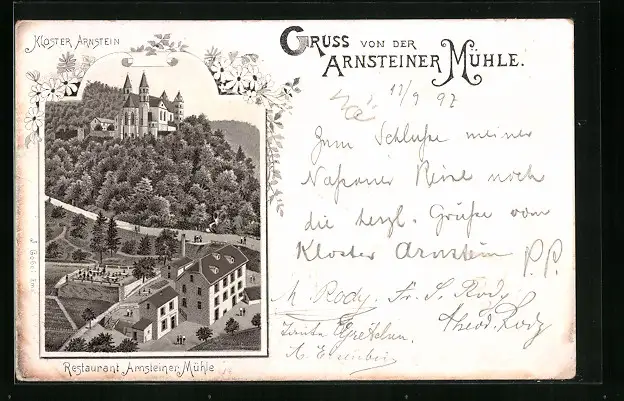 Kloster Arnstein
Gruss von der
Arnsteiner Mühle.
11/9 97
Zum Schluße meiner
Nassauer Reise noch
die herzl. Grüße vom
Kloster Arnstein
P.P.
M Rody. Fr. S. Rody
Theod. Rody
Gretchen
Restaurant Arnsteiner Mühle